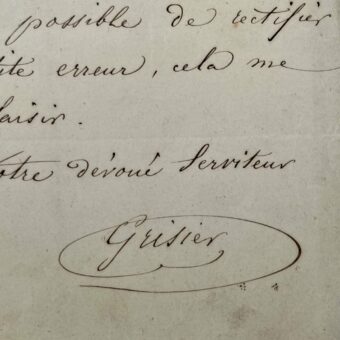 possible de rectifier
ite erreur, cela me
laisir.
otre dévoué Serviteur
Grisier